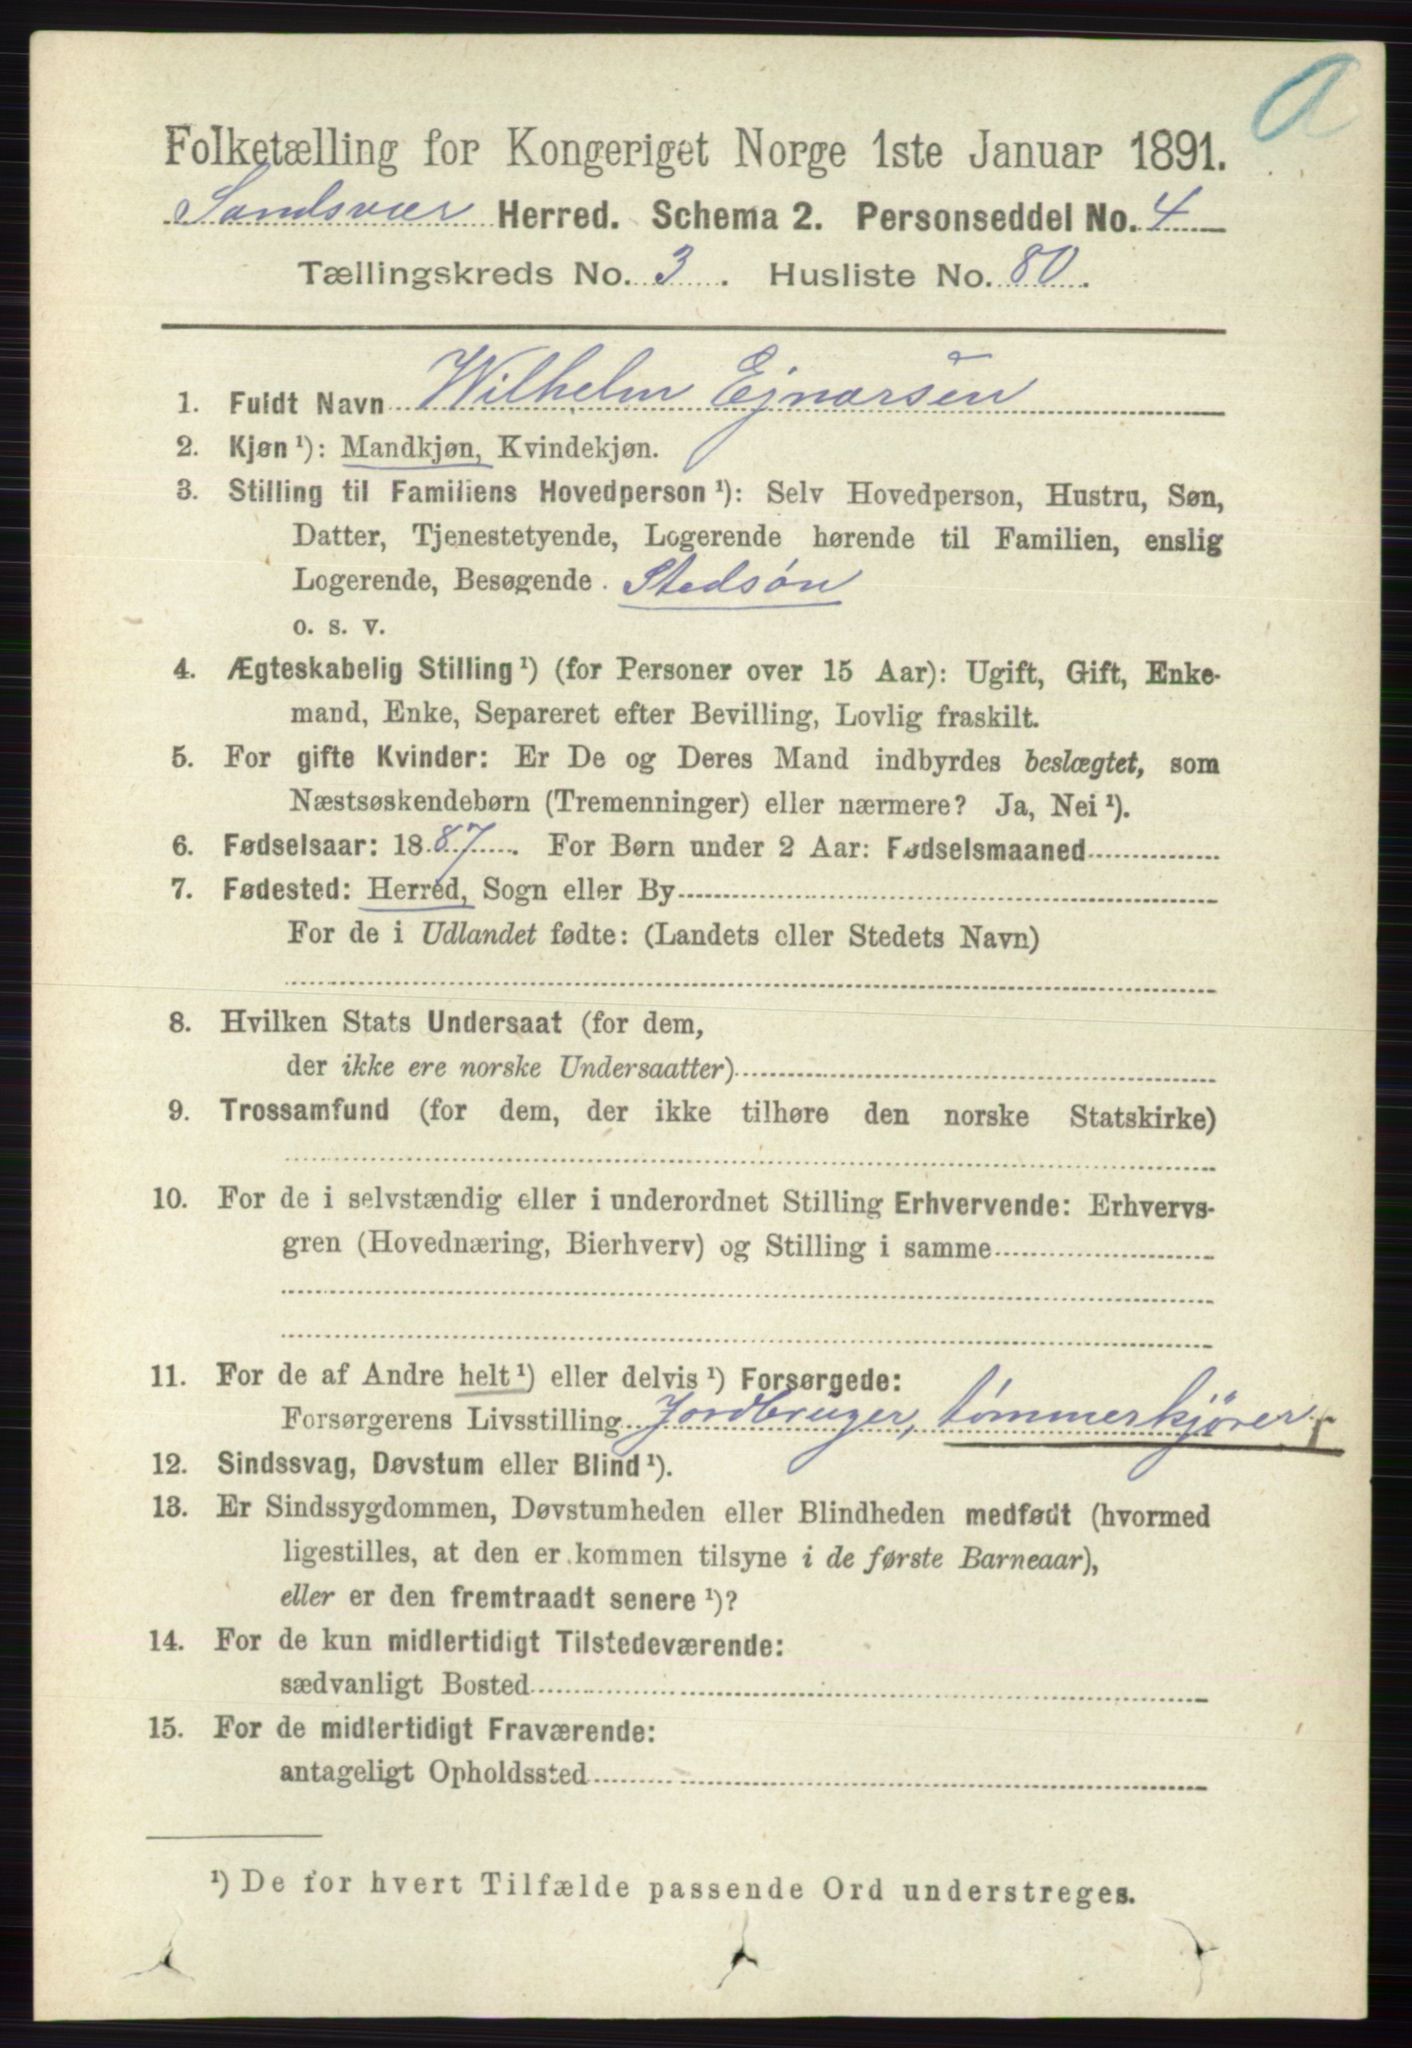 a
Folketælling for Kongeriget Norge 1ste Januar 1891.
Sandsvær Herred. Schema 2. Personseddel No. 4
Tællingskreds No. 3. Husliste No. 80.
1. Fuldt Navn Wilhelm Ejnarsen
2. Kjøn ¹): Mandkjøn, Kvindekjøn.
3. Stilling til Familiens Hovedperson ¹): Selv Hovedperson, Hustru, Søn,
Datter, Tjenestetyende, Logerende hørende til Familien, enslig
Logerende, Besøgende. Stedsøn
o. s. v.
4. Ægteskabelig Stilling ¹) (for Personer over 15 Aar): Ugift, Gift, Enke-
mand, Enke, Separeret efter Bevilling, Lovlig fraskilt.
5. For gifte Kvinder: Er De og Deres Mand indbyrdes beslægtet, som
Næstsøskendebørn (Tremenninger) eller nærmere? Ja, Nei ¹).
6. Fødselsaar: 1887. For Børn under 2 Aar: Fødselsmaaned
7. Fødested: Herred, Sogn eller By
For de i Udlandet fødte: (Landets eller Stedets Navn)
8. Hvilken Stats Undersaat (for dem,
der ikke ere norske Undersaatter)
9. Trossamfund (for dem, der ikke tilhøre den norske Statskirke)
10. For de i selvstændig eller i underordnet Stilling Erhvervende: Erhvervs-
gren (Hovednæring, Bierhverv) og Stilling i samme
11. For de af Andre helt ¹) eller delvis ¹) Forsørgede:
Forsørgerens Livsstilling Jordbruger, tømmerkjører
12. Sindssvag, Døvstum eller Blind ¹).
13. Er Sindssygdommen, Døvstumheden eller Blindheden medfødt (hvormed
ligestilles, at den er kommen tilsyne i de første Barneaar),
eller er den fremtraadt senere ¹)?
14. For de kun midlertidigt Tilstedeværende:
sædvanligt Bosted
15. For de midlertidigt Fraværende:
antageligt Opholdssted
¹) De for hvert Tilfælde passende Ord understreges.